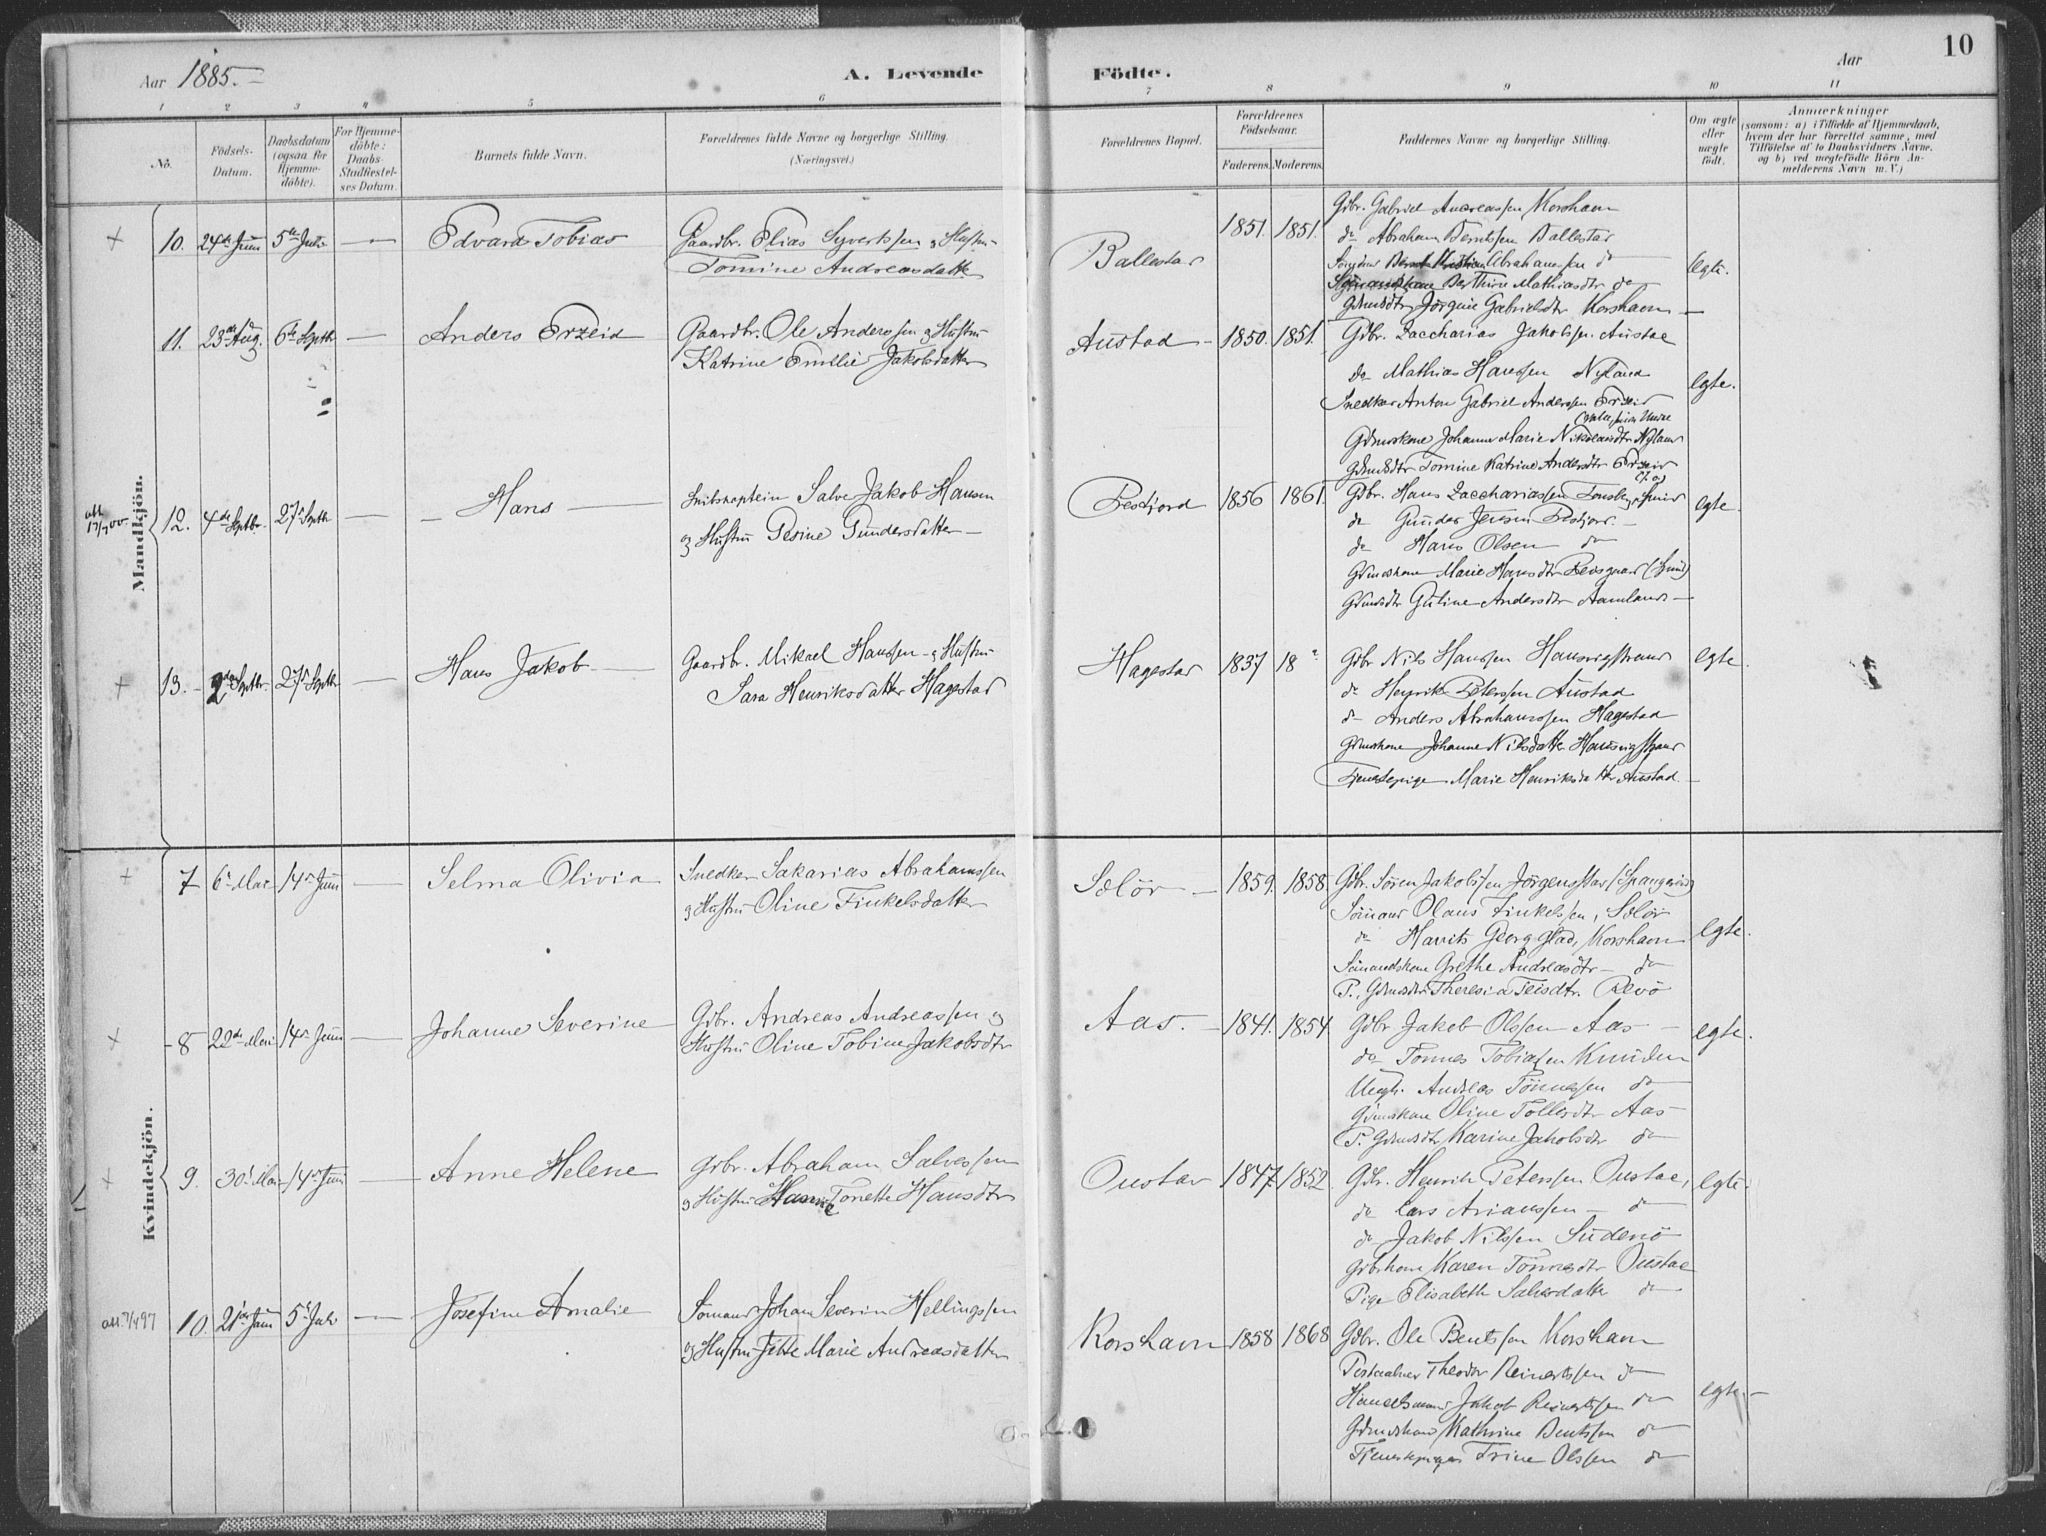 Aar 1885.
A. Levende Födte.
Aar
10
1 2 3 4 5 6 7 8 9 10 11
No.
Födsels-Datum.
Daabsdatum (ogsaa for Hjemme-döbte).
For Hjemme-döbte: Daabs-Stadfæstel-ses Datum.
Barnets fulde Navn.
Forældrenes fulde Navne og borgerlige Stilling.
(Næringsvei.)
Forældrenes Bopæl.
Forældrenes Födselsaar.
Faderens. Moderens.
Faddernes Navne og borgerlige Stilling.
Om ægte eller uægte födt.
Anmærkninger
(saasom: a) i Tilfælde af Hjemmedaab, hvem der har forrettet samme, med Tilföielse af to Daabsvidners Navne, og b) ved uægtefödte Börn An-melderens Navn m. V.)
Mandkjön.
10. 24de Juni 5te Juli — Edvard Tobias
Gaardbr. Elias Syvertssen og Hustru
Tomine Andreasdatter
Ballestad 1851. 1851.
Gdbr. Gabriel Andreassen Korshavn
do Abraham Berntssen Ballestad
Abrahamssen do
Berthine Mathiasdtr do
Gdmdsdtr Jörgine Gabrielsdtr Korshavn
Egte.
11. 23de Aug. 6te Septb — Anders Erzeid
Gaardbr. Ole Anderssen og Hustru
Katrine Emilie Jakobsdatter
Austad 1850. 1851.
Gdbr. Zaccharias Jakobssen Austad
do Mathias Hanssen Nyland
Snedker Anton Gabriel Anderssen Erzeid
Gdmdskone Johanne Marie Nikolaisdtr Nyland
Gdmdsdtr Tomine Katrine Andersdtr Erzeid
egte.
12. 4de Septbr. 27de Septb — Hans
Salve Jakob Hansen
og Hustru Gesine Gundersdatter
1856 1861.
Gdbr. Hans Zacchariassen
do Gunder Jensen
do Hans Olsen do
Gdmdskone Marie Hansdtr
Gdmdsdtr Guline Andersdtr Aamland
egte.
13. 2den Septbr 27de Septb — Hans Jakob
Gaardbr. Mikael Hanssen og Hustru
Sara Henriksdatter Hagestad
Hagestad 1837 18 ?
Gdbr Nils Hanssen Hausvigstrand
do Henrik Peterssen Austad
do Anders Abrahamssen Hagestad
Gdmdskone Johanne Nilsdatter Hausvigstrand
Tjenestepige Marie Henriksdatter Austad
egte
Kvindekjön.
7 6te Mai 14de Juni — Selma Olivia
Snedker Sakarias Abrahamssen
og Hustru Oline Finkelsdatter
Selör 1859. 1858.
Gdbr. Sören Jakobssen Jörgensstad (Spangereid)
Sömand Olaus Finkelssen, Selör
do Georg Glad, Korshavn
Sömandskone Grethe Andreasdtr do
P. Gdmdsdtr Theresia Teisdtr. Revö
egte.
8 22de Mai 14de Juni — Johanne Severine
Gdbr. Andreas Andreassen og
Hustru Oline Tobine Jakobsdtr
Aas. 1841. 1854.
Gdbr Jakob Olssen Aas
do Tönnes Tobiassen
Ungk. Andreas Tönnessen do
Gdmdskone Oline Tollersdtr Aas
P. Gdmdsdtr Karine Jakobsdtr do
egte.
9. 30te Mai 14de Juni — Anne Helene
Gdbr. Abraham Salvessen
og Hustru Hanne Tonette Hansdtr
Oustad 1847. 1852
Gdbr. Henrik Peterssen Oustad,
do Lars Arianssen do
do Jakob Nilssen
Gdbrkone Karen Tönnesdtr Oustad
Pige Elisabeth Salvesdatter do
egte.
10. 21de Juni 5te Juli — Josefine Amalie
Sömand Johan Severin Hellingssen
og Hustru Jette Marie Andreasdatter
Korshavn 1858 1868
Gdbr. Ole Bentssen Korshavn
Theodor Reinertssen do
Handelsmand Jakob Reinertssen do
Gdmdskone Kathrine Bentssen do
Tjenestepige Trine Olssen do
egte